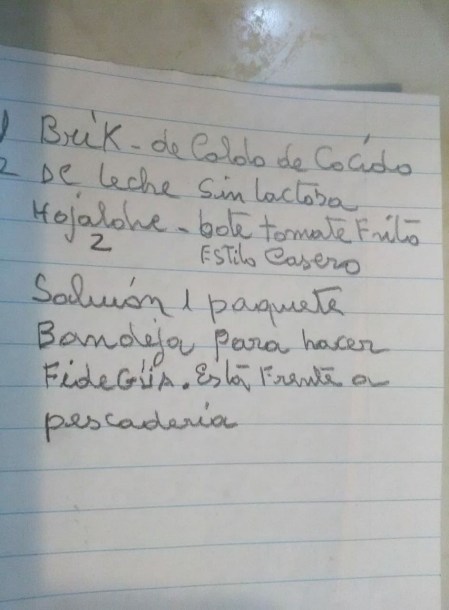 1 Brik - de Caldo de Cocido
2 De leche Sin lactosa
Hojaldre - bote tomate Frito
2 Estilo Casero
Salmón 1 paquete
Bandeja para hacer
FideGüa. Está Frente a
pescaderia